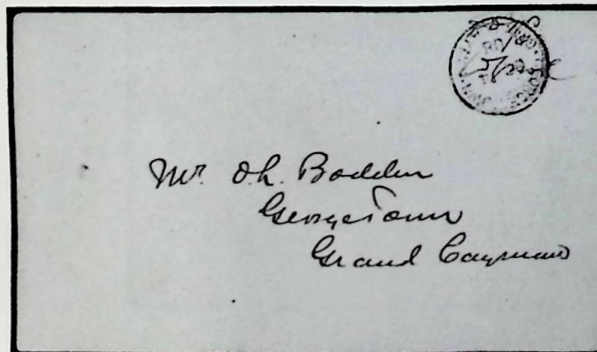 Mr. O.L. Bodden
Georgetown
Grand Cayman